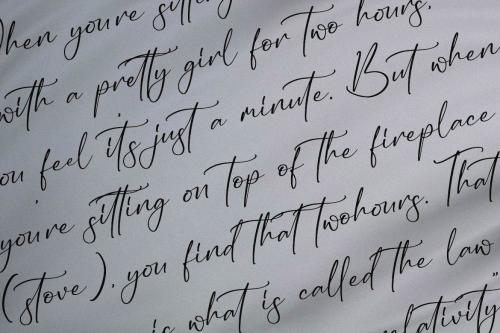 When you're sitting
with a pretty girl for two hours,
you feel it's just a minute. But when
you're sitting on top of the fireplace
(stove), you find that twohours. That
is what is called the law
relativity"